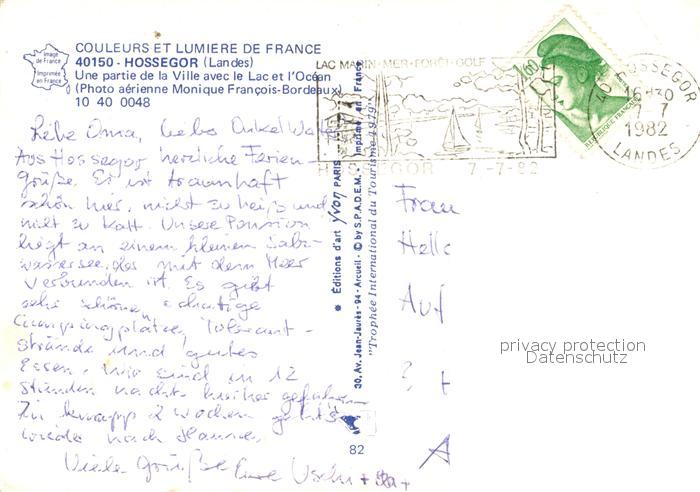 COULEURS ET LUMIERE DE FRANCE
40150 - HOSSEGOR (Landes)
Une partie de la Ville avec le Lac et l'Océan
(Photo aérienne Monique François-Bordeaux)
10 40 0048
Image
de France
Imprimée
en France
LAC MARIN-MER-FORÊT-GOLF
HOSSEGOR 7-7-82
1,60
RÉPUBLIQUE FRANÇAISE
40 HOSSEGOR
16H30
7-7
1982
LANDES
Liebe Oma, liebe Onkel
Aus Hossegor herzliche Ferien-
grüße. Es ist traumhaft
schön hier, nicht zu heiß und
nicht zu kalt. Unsere Pension
liegt an einem kleinen Salz-
wassersee, der mit dem Meer
verbunden ist. Es gibt
sehr schöne, schattige
Campingplätze,
strände und gutes
Essen. Wir sind in 12
Stunden nachts hierher gefahren
In knapp 2 Wochen geht's
wieder nach Hause.
Viele Grüße Uschi +
Editions d'art yvon PARIS
30, Av. Jean-Jaurès - 94 - Arcueil - © by S.P.A.D.E.M. - Imprimé en France
"Trophée International du Tourisme 1979"
82
Frau
Auf
privacy protection
Datenschutz